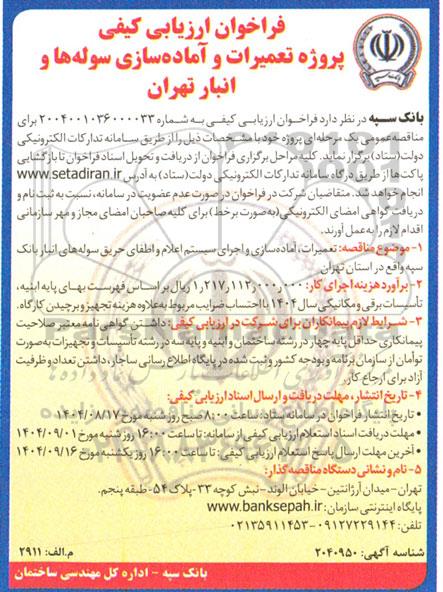 فراخوان ارزیابی کیفی
پروژه تعمیرات و آماده‌سازی سوله‌ها و
انبار تهران
بانک سپه در نظر دارد فراخوان ارزیابی کیفی به شماره ۲۰۰۴۰۰۱۰۳۶۰۰۰۰۳۳ برای
مناقصه عمومی یک مرحله‌ای پروژه خود با مشخصات ذیل را از طریق سامانه تدارکات الکترونیکی
دولت (ستاد) برگزار نماید. کلیه مراحل برگزاری فراخوان از دریافت و تحویل اسناد فراخوان تا بازگشایی
پاکت‌ها از طریق درگاه سامانه تدارکات الکترونیکی دولت (ستاد) به آدرس www.setadiran.ir
انجام خواهد شد. متقاضیان شرکت در فراخوان در صورت عدم عضویت در سامانه، نسبت به ثبت نام و
دریافت گواهی امضای الکترونیکی (به صورت برخط) برای کلیه صاحبان امضای مجاز و مهر سازمانی
اقدام لازم را به عمل آورند.
۱- موضوع مناقصه: تعمیرات، آماده‌سازی و اجرای سیستم اعلام و اطفای حریق سوله‌های انبار بانک
سپه واقع در استان تهران
۲- برآورد هزینه اجرای کار: ۱,۲۱۷,۱۱۲,۰۰۰,۰۰۰ ریال بر اساس فهرست بهای پایه ابنیه،
تأسیسات برقی و مکانیکی سال ۱۴۰۴ با احتساب ضرایب مربوط به علاوه هزینه تجهیز و برچیدن کارگاه.
۳- شرایط لازم پیمانکاران برای شرکت در ارزیابی کیفی: داشتن گواهی نامه معتبر صلاحیت
پیمانکاری حداقل پایه چهار در رشته ساختمان و ابنیه و پایه سه در رشته تأسیسات و تجهیزات به صورت
توأمان از سازمان برنامه و بودجه کشور و ثبت شده در پایگاه اطلاع رسانی ساجار، داشتن تعداد و ظرفیت
آزاد برای ارجاع کار.
۴- تاریخ انتشار، مهلت دریافت و ارسال اسناد ارزیابی کیفی:
• تاریخ انتشار فراخوان در سامانه ستاد: ساعت ۸:۰۰ صبح روز شنبه مورخ ۱۴۰۴/۰۸/۱۷
• مهلت دریافت اسناد استعلام ارزیابی کیفی از سامانه: تا ساعت ۱۶:۰۰ روز شنبه مورخ ۱۴۰۴/۰۹/۰۱
• آخرین مهلت ارسال پاسخ استعلام ارزیابی کیفی: تا ساعت ۱۶:۰۰ روز یکشنبه مورخ ۱۴۰۴/۰۹/۱۶
۵- نام و نشانی دستگاه مناقصه گذار:
تهران- میدان آرژانتین- خیابان الوند- نبش کوچه ۳۳- پلاک ۵۴- طبقه پنجم.
پایگاه اینترنتی سازمان: www.banksepah.ir
تلفن: ۰۹۱۲۷۲۲۹۱۴۴-۰۲۱۳۵۹۱۱۴۵۳
شناسه آگهی: ۲۰۴۰۹۵۰
م.الف: ۲۹۱۱
بانک سپه - اداره کل مهندسی ساختمان